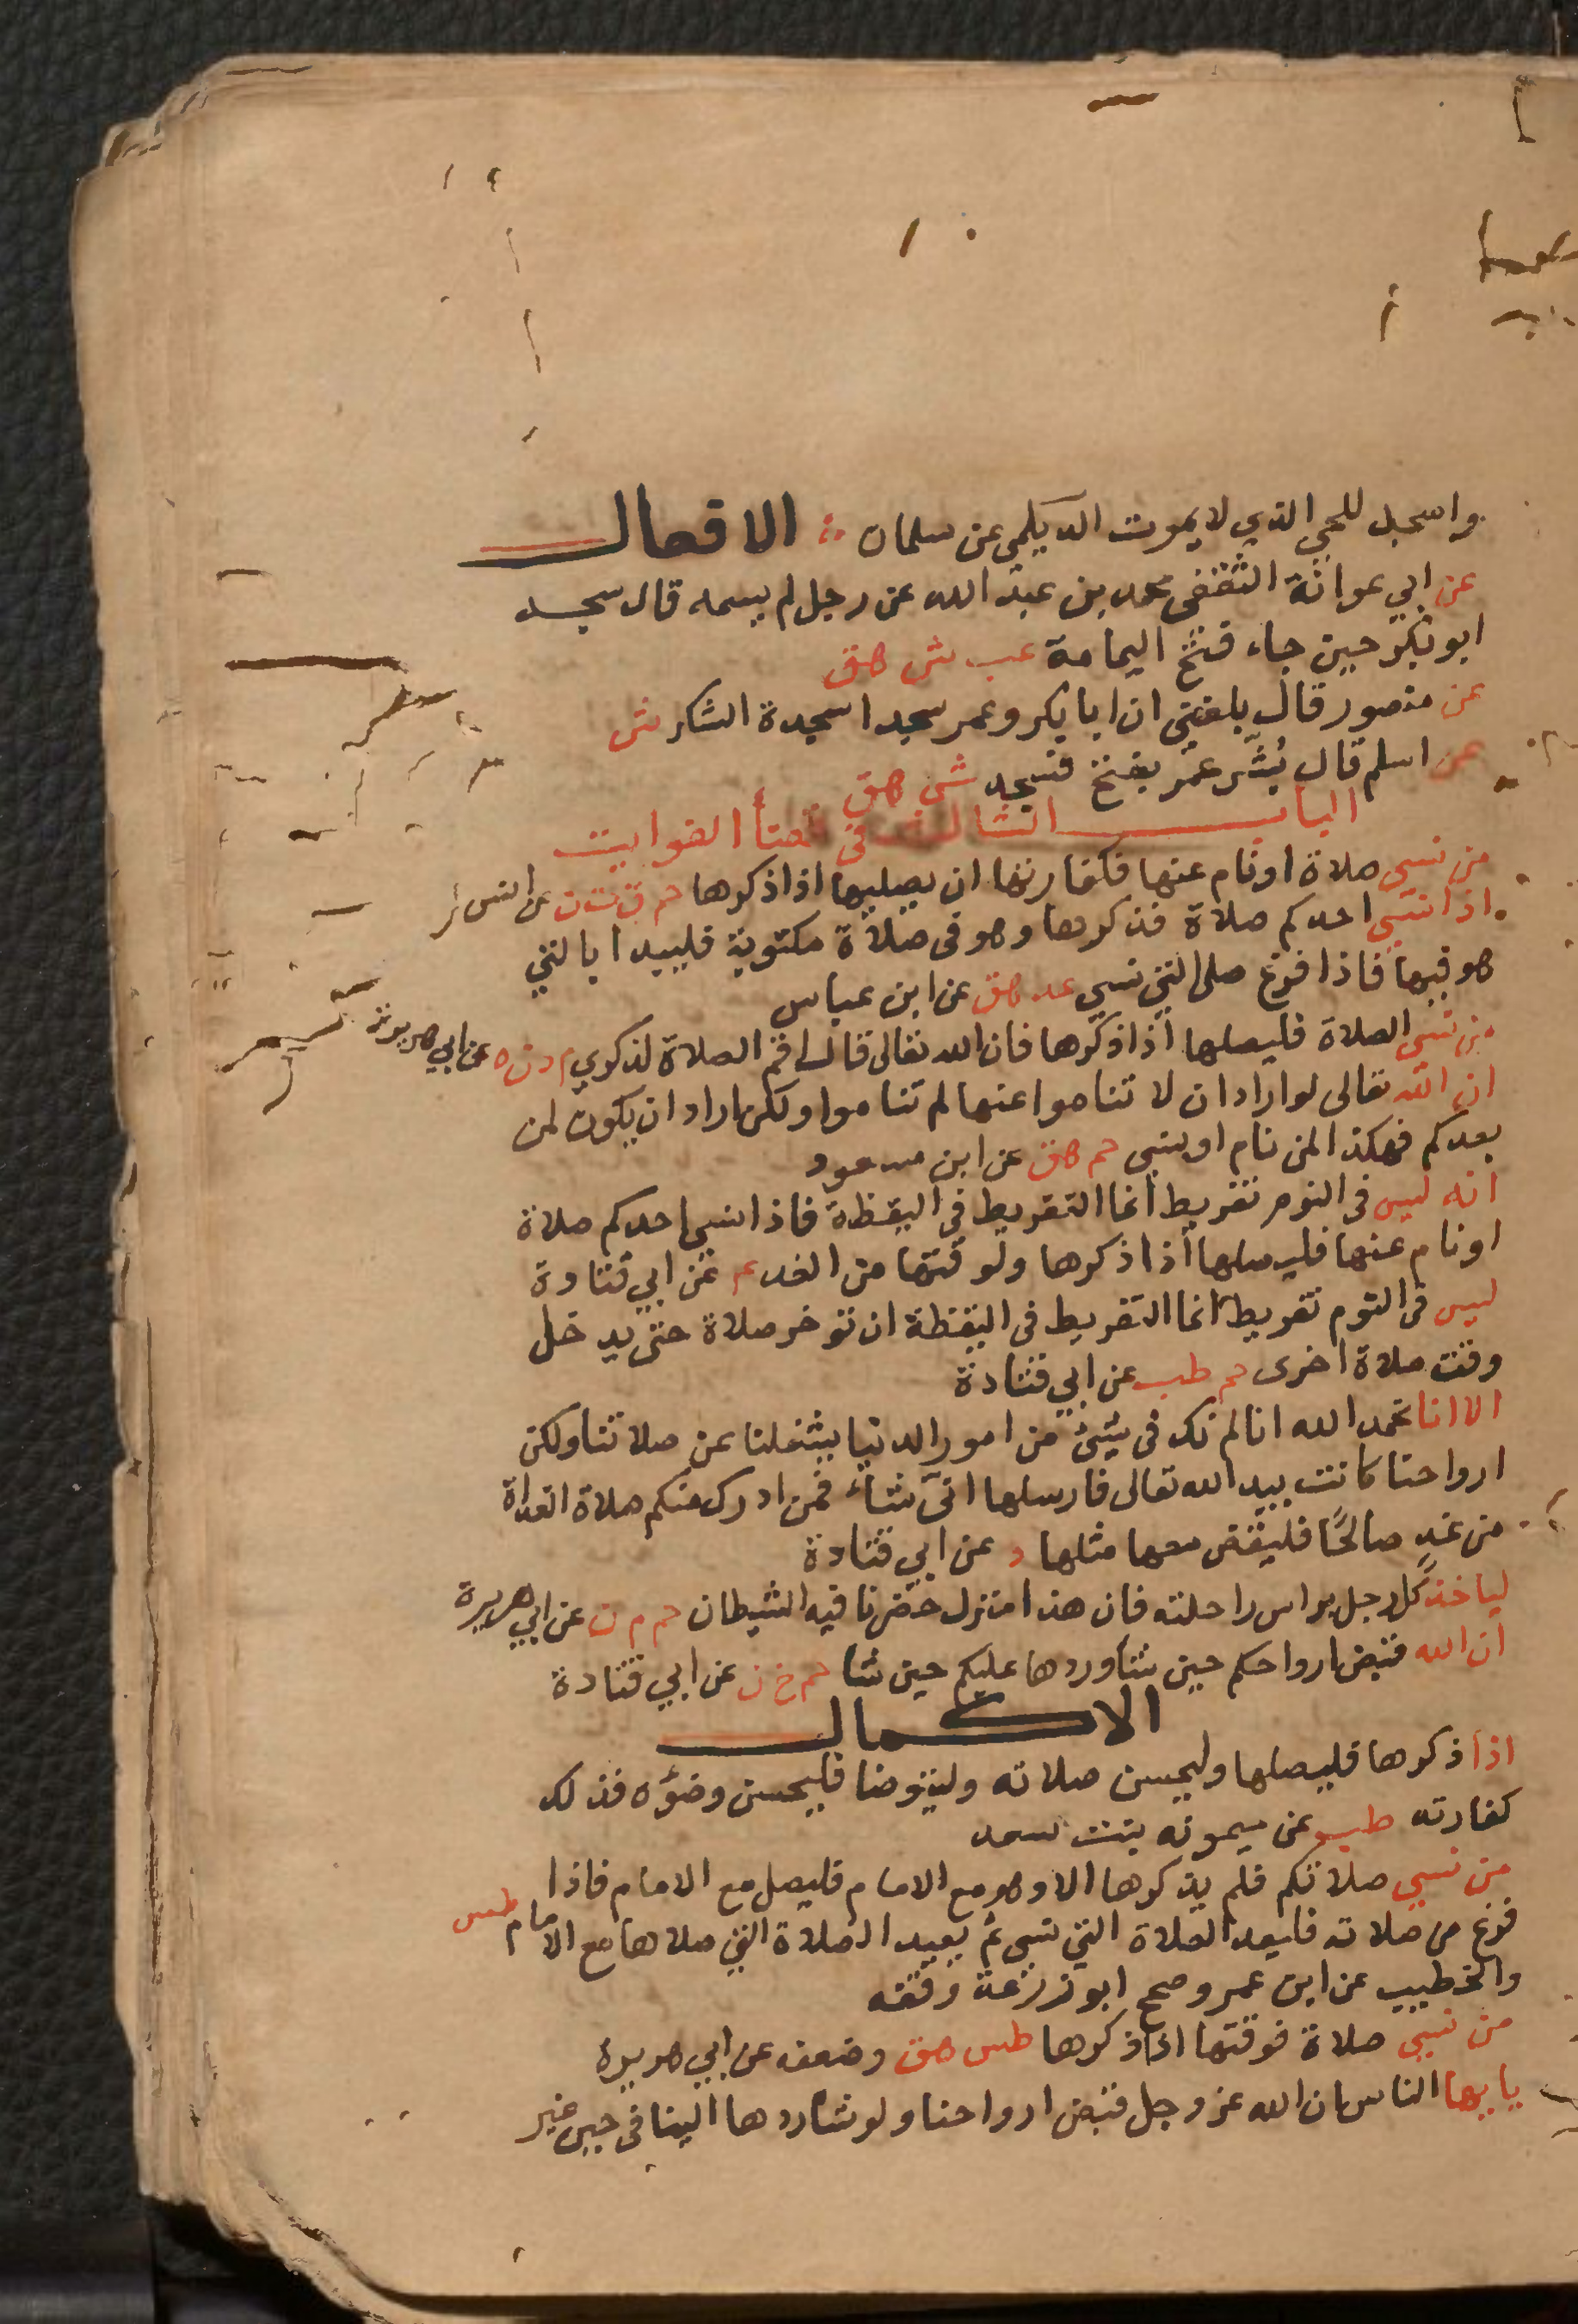 واسجد للحي الذي لا يموت الديلمي عن سلمان الافعال
عن ابي عوانة الثقفي محمد بن عبد الله عن رجل لم يسمه قال سجد
ابو بكر حين جاء فتح اليمامة عب ش هق
عن منصور قال بلغني ان ابا بكر وعمر سجدا سجدة الشكر ش
عن اسلم قال بُشّر عمر بفتح فسجد ش هق
الباب الثالث في قضأ الفوايت
من نسي صلاة او نام عنها فكفارتها ان يصليها اذا ذكرها حم ق ت ن عن انس
اذا نسي احدكم صلاة فذكرها وهو في صلاة مكتوبة فليبدا بالتي
هو فيها فاذا فرغ صلى التي نسي عد هق عن ابن عباس
من نسي الصلاة فليصلها اذا ذكرها فان الله تعالى قال اقم الصلاة لذكري م د ن ه عن ابي هريرة
ان الله تعالى لو اراد ان لا تناموا عنها لم تناموا ولكن اراد ان يكون لمن
بعدكم فهكذا لمن نام او نسي حم هق عن ابن مسعود
انه ليس في النوم تفريط انما التفريط في اليقظة فاذا نسي احدكم صلاة
او نام عنها فليصلها اذا ذكرها ولوقتها من الغد عم عن ابي قتادة
ليس في النوم تفريط انما التفريط في اليقظة ان توخر صلاة حتى يدخل
وقت صلاة اخرى حم طب عن ابي قتادة
الا انا نحمد الله انا لم نك في شيئ من امور الدنيا يشغلنا عن صلاتنا ولكن
ارواحنا كانت بيد الله تعالى فارسلها انىّ شاء فمن ادرك منكم صلاة الغداة
من غدٍ صالحًا فليقض معها مثلها د عن ابي قتادة
لياخذ كل رجل براس راحلته فان هذا منزل حضرنا فيه الشيطان حم م ن عن ابي هريرة
ان الله قبض ارواحكم حين شا وردها عليكم حين شا حم خ ن عن ابي قتادة
الاكمال
اذا ذكرها فليصلها وليحسن صلاته وليتوضا فليحسن وضؤه فذلك
كفارته طب عن ميمونه بنت سعد
من نسي صلاتكم فلم يذكرها الا وهو مع الامام فليصل مع الامام فاذا
فرغ من صلاته فليعد الصلاة التي نسي ثم يعيد الصلاة التي صلاها مع الامام طس
والخطيب عن ابن عمر وصحح ابو زرعة وقفه
من نسي صلاة فوقتها اذا ذكرها طس هق وضعفه عن ابي هريرة
يايها الناس ان الله عز وجل قبض ارواحنا ولو شا ردها الينا في حين غير